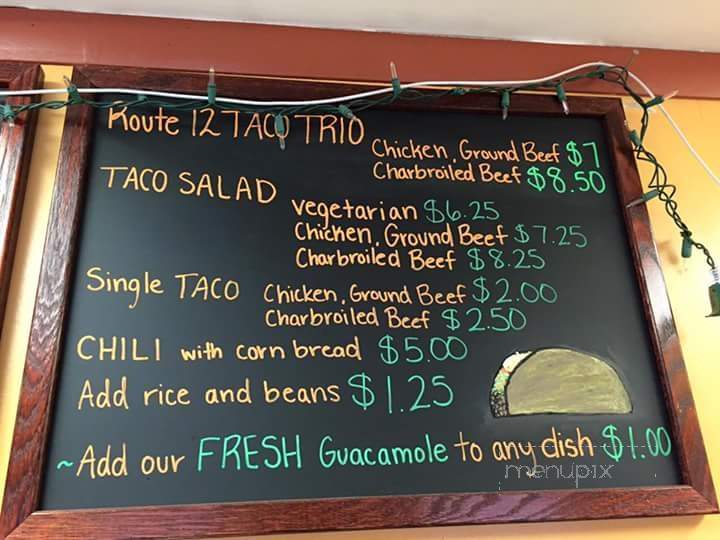 Route 12 TACO TRIO
Chicken, Ground Beef $7
Charbroiled Beef $8.50
TACO SALAD
vegetarian $6.25
Chicken, Ground Beef $7.25
Charbroiled Beef $8.25
Single TACO Chicken, Ground Beef $2.00
Charbroiled Beef $2.50
CHILI with corn bread $5.00
Add rice and beans $1.25
~Add our FRESH Guacamole to any dish $1.00
menupix